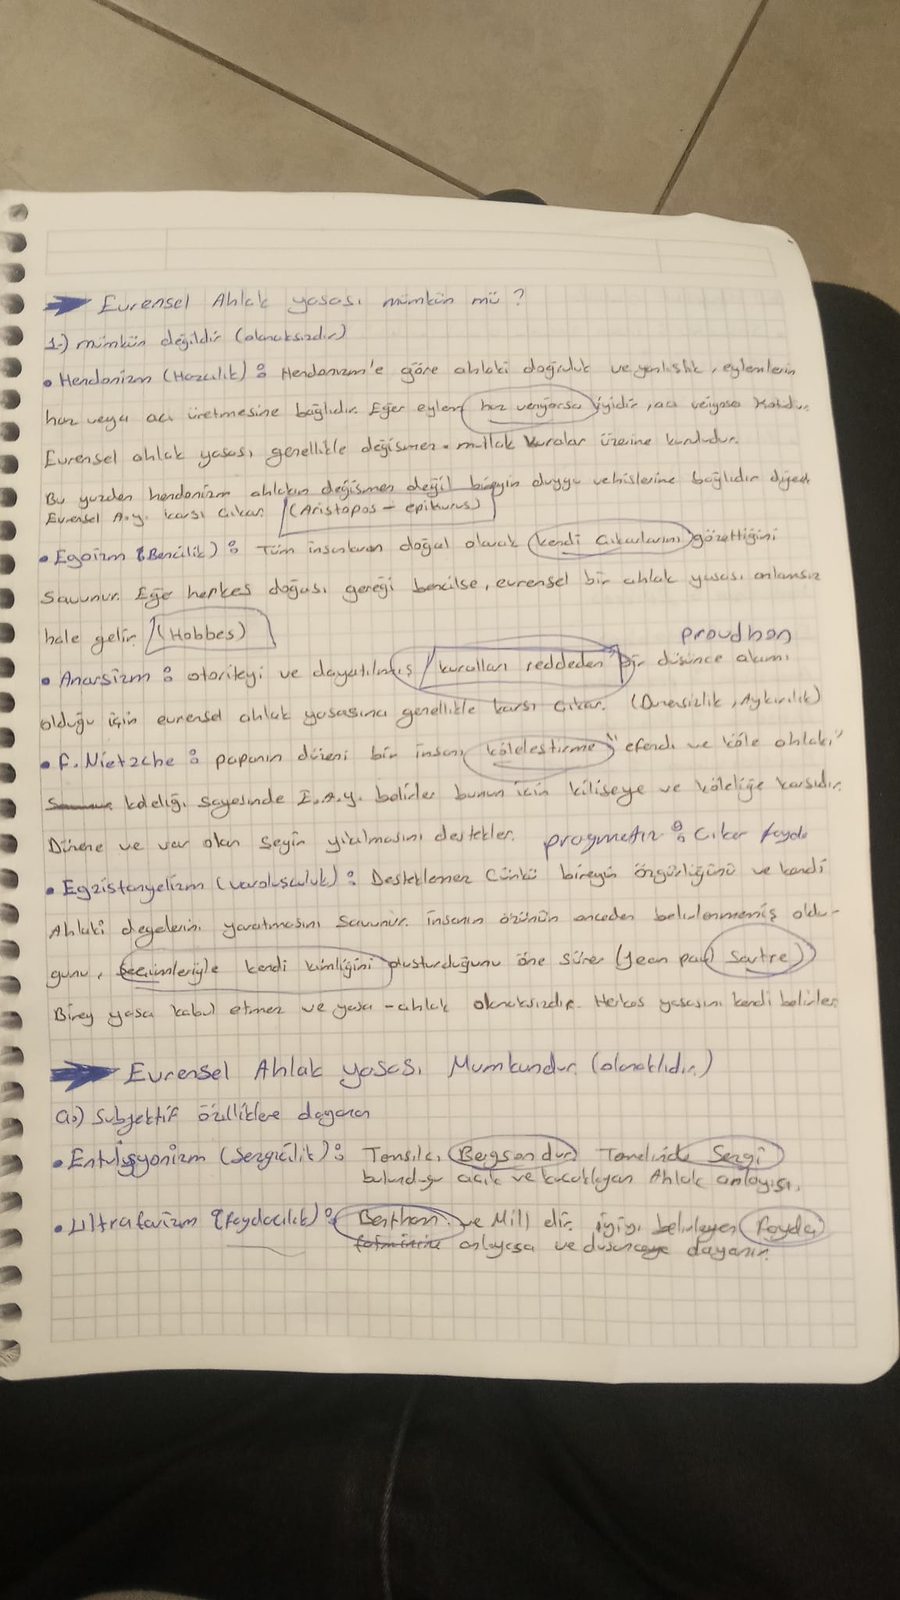 Evrensel Ahlak yasası mümkün mü ?
1-) mümkün değildir (olanaksızdır)
• Hendonizm (Hazcılık) : Hendonizm'e göre ahlaki doğruluk ve yanlışlık, eylemlerin
haz veya acı üretmesine bağlıdır. Eğer eylem haz veriyorsa iyidir, acı veriyosa kötüdür.
Evrensel ahlak yasası genellikle değişmez - mutlak kuralar üzerine kuruludur.
Bu yüzden hendonizm ahlakın değişmen değil bireyin duygu ve hislerine bağlıdır diyerek
Evrensel A.y. karşı çıkar. (Aristopos - epikurus)
• Egoizm (Bencilik) : Tüm insanların doğal olarak kendi çıkarlarını gözettiğini
Savunur. Eğe herkes doğası gereği bencilse, evrensel bir ahlak yasası anlamsız
hale gelir. (Hobbes)
proudhon
• Anarşizm : otoriteyi ve dayatılmış kuralları reddeden bir düşünce akımı
olduğu için evrensel ahlak yasasına genellikle karşı çıkar. (Düzensizlik, Aykırılık)
• F. Nietzche : papanın düzeni bir insanı köleleştirme "efendi ve köle ahlakı"
köleliği sayesinde E.A.y. belirler bunun için kiliseye ve köleliğe karşıdır.
Düzene ve var olan şeyin yıkılmasını destekler. pragmatiz : çıkar fayda
• Egzistanyelizm (varoluşculuk) : Desteklemez Çünkü bireyin özgürlüğünü ve kendi
Ahlaki değelerini yaratmasını savunur. insanın özünün önceden belirlenmemiş oldu-
ğunu, seçimleriyle kendi kimliğini oluşturduğunu öne sürer (Jean paul Sartre)
Birey yasa kabul etmez ve yasa - ahlak olanaksızdır. Herkes yasasını kendi belirler.
Evrensel Ahlak yasası Mumkundur. (olanaklıdır.)
a.) Subjektif özelliklere dayanan
• Entüisyonizm (Sezgicilik) : Temsilci Bergsondur Temelinde Sezgi
bulunduğu açık ve kucaklayan Ahlak anlayışı.
• Ultrafarizm (faydacılık) : Benthan ve Mill dir. iyiyi belirleyen fayda
anlayışa ve düşünceye dayanır.